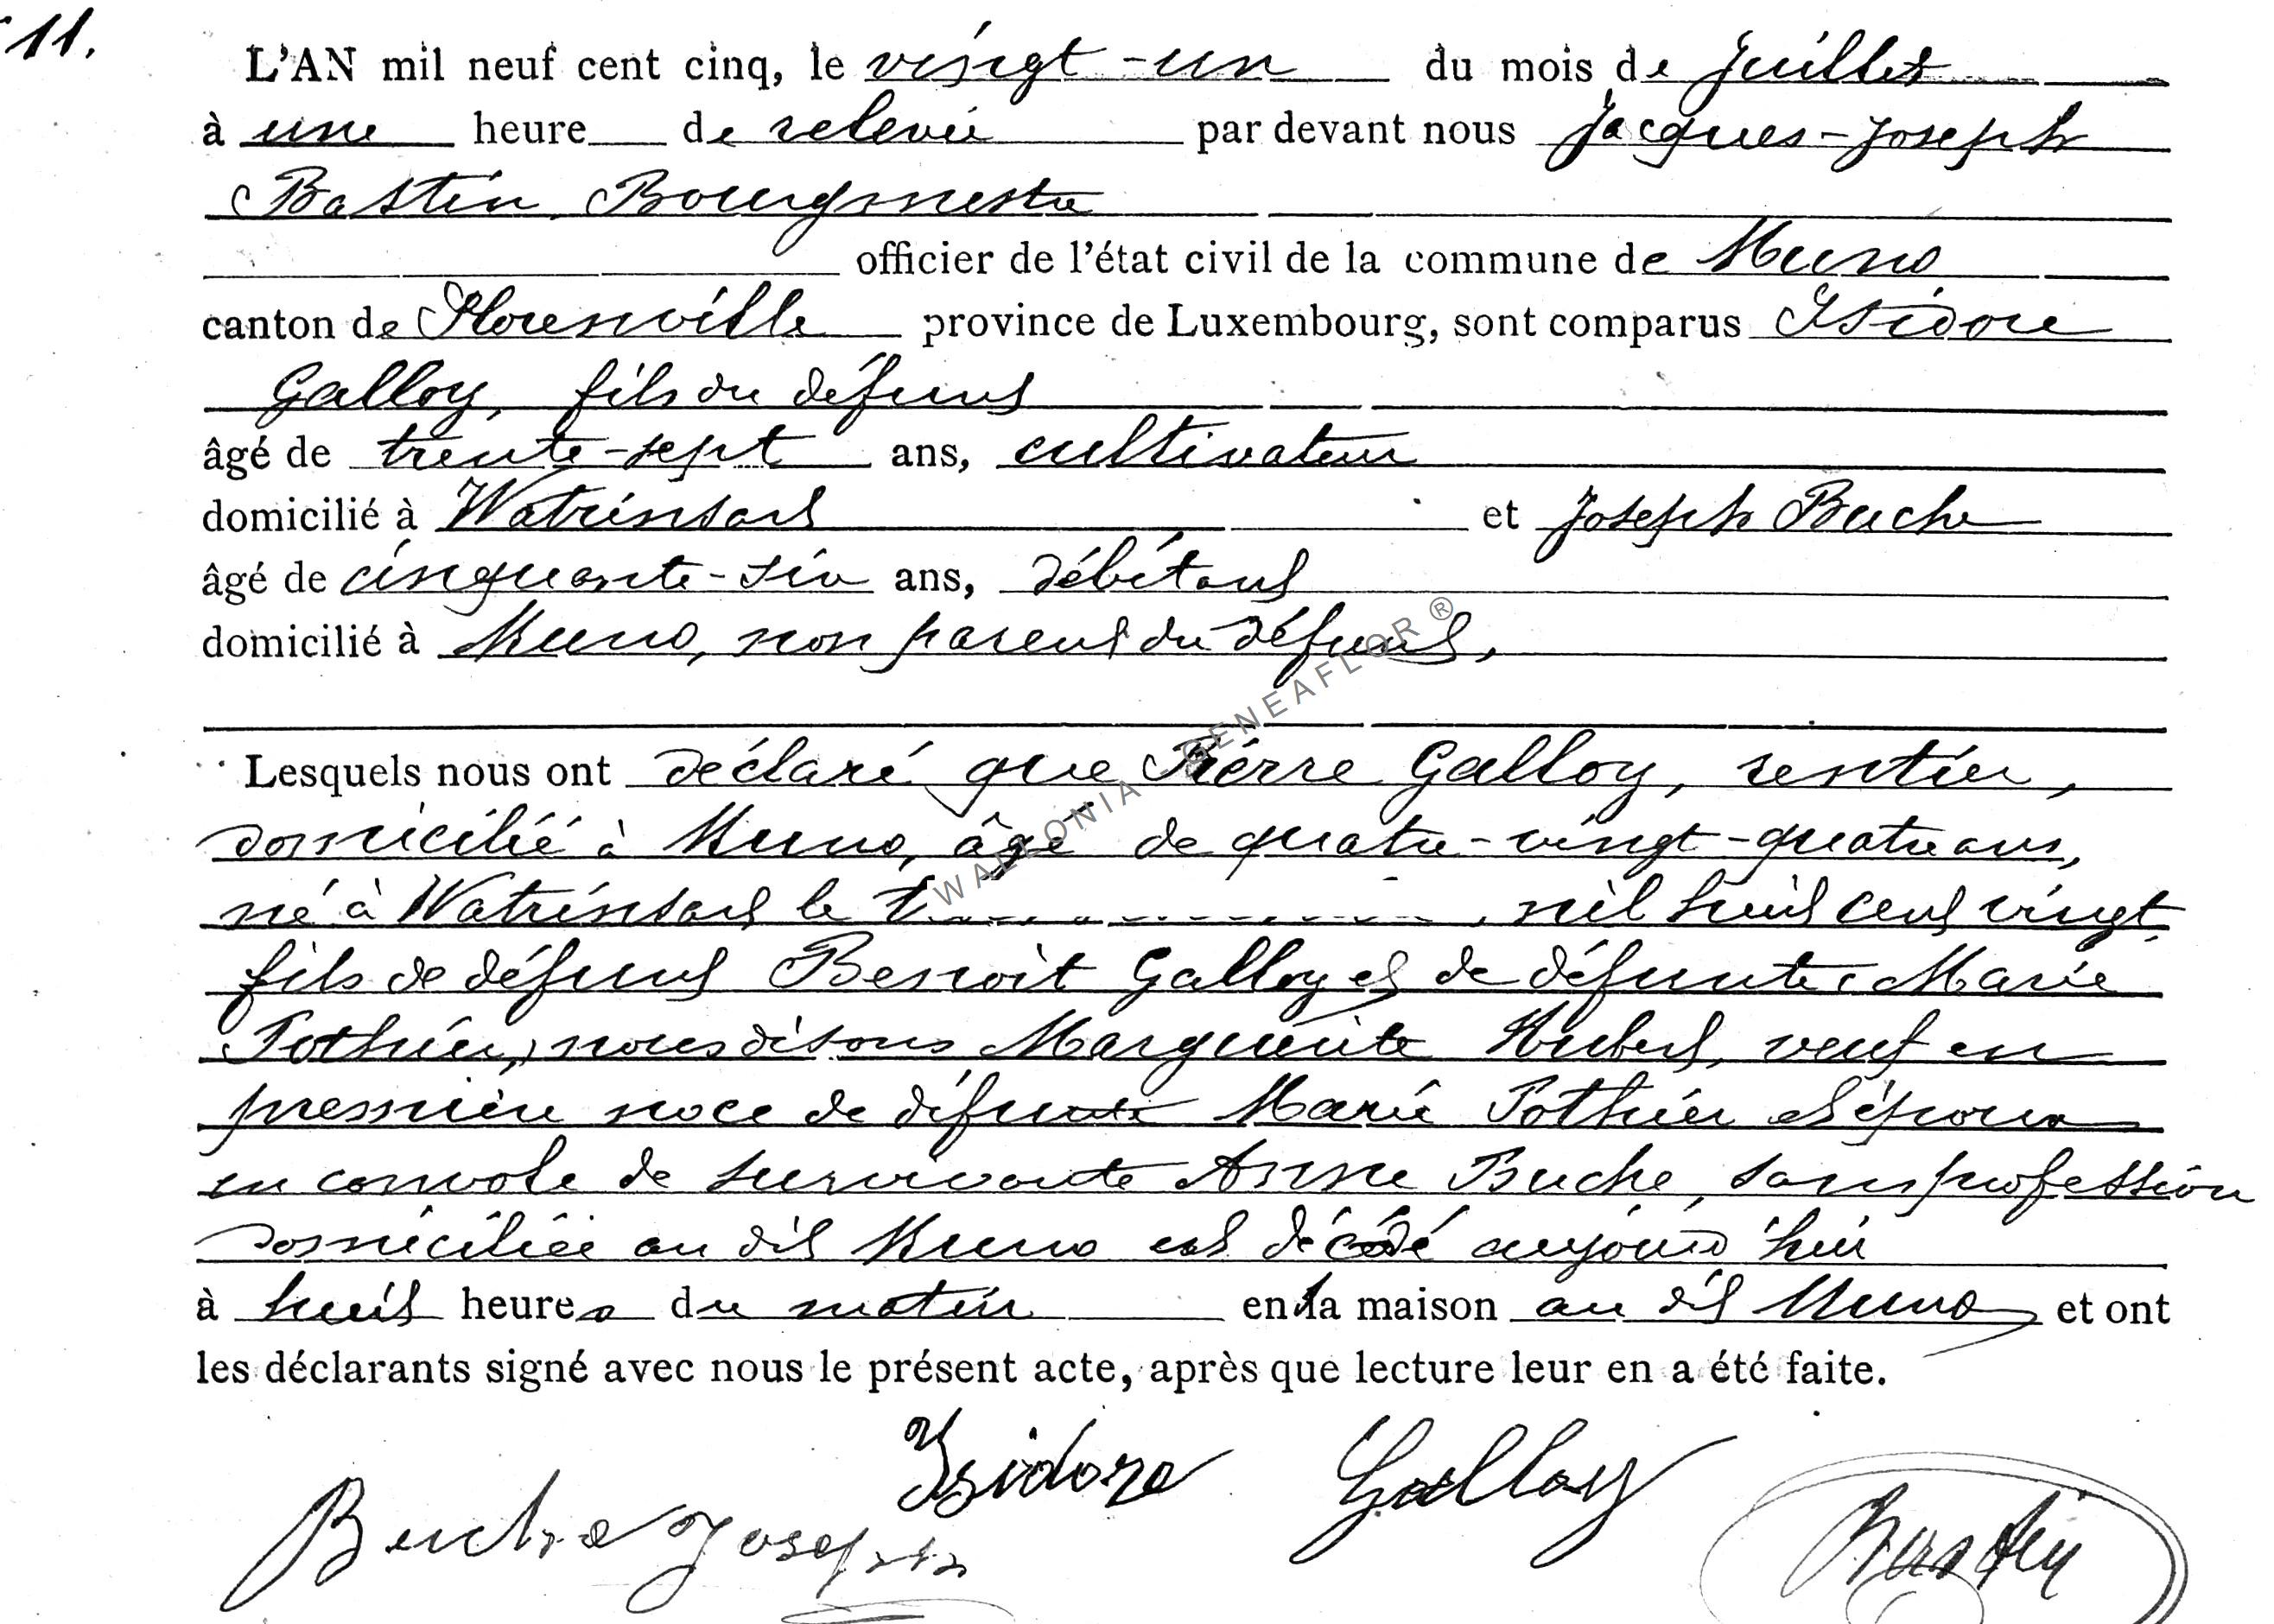 11.
L'AN mil neuf cent cinq, le vingt-un du mois de juillet
à une heure de relevée par devant nous Jacques-Joseph
Bastin, Bourgmestre
officier de l'état civil de la commune de Muno
canton de Florenville province de Luxembourg, sont comparus Isidore
Galloy, fils du défunt
âgé de trente-sept ans, cultivateur
domicilié à Watrinsart et Joseph Buche
âgé de cinquante-six ans, débitant
domicilié à Muno, non parent du défunt,
WALLONIA GENEAFLOR ®
Lesquels nous ont déclaré que Pierre Galloy, rentier,
domicilié à Muno, âgé de quatre-vingt-quatre ans,
né à Watrinsart le mil huit cent vingt
fils de défunt Benoit Galloy et de défunte Marie
Pothier, nous disons Marguerite Hubert, veuf en
première noce de défunte Marie Pothier et époux
en convole de survivante Anne Buche, sans profession
domiciliée au dit Muno est décédé aujourd'hui
à huit heures du matin en la maison au dit Muno et ont
les déclarants signé avec nous le présent acte, après que lecture leur en a été faite.
Isidore Galloy
Buche Joseph
Bastin